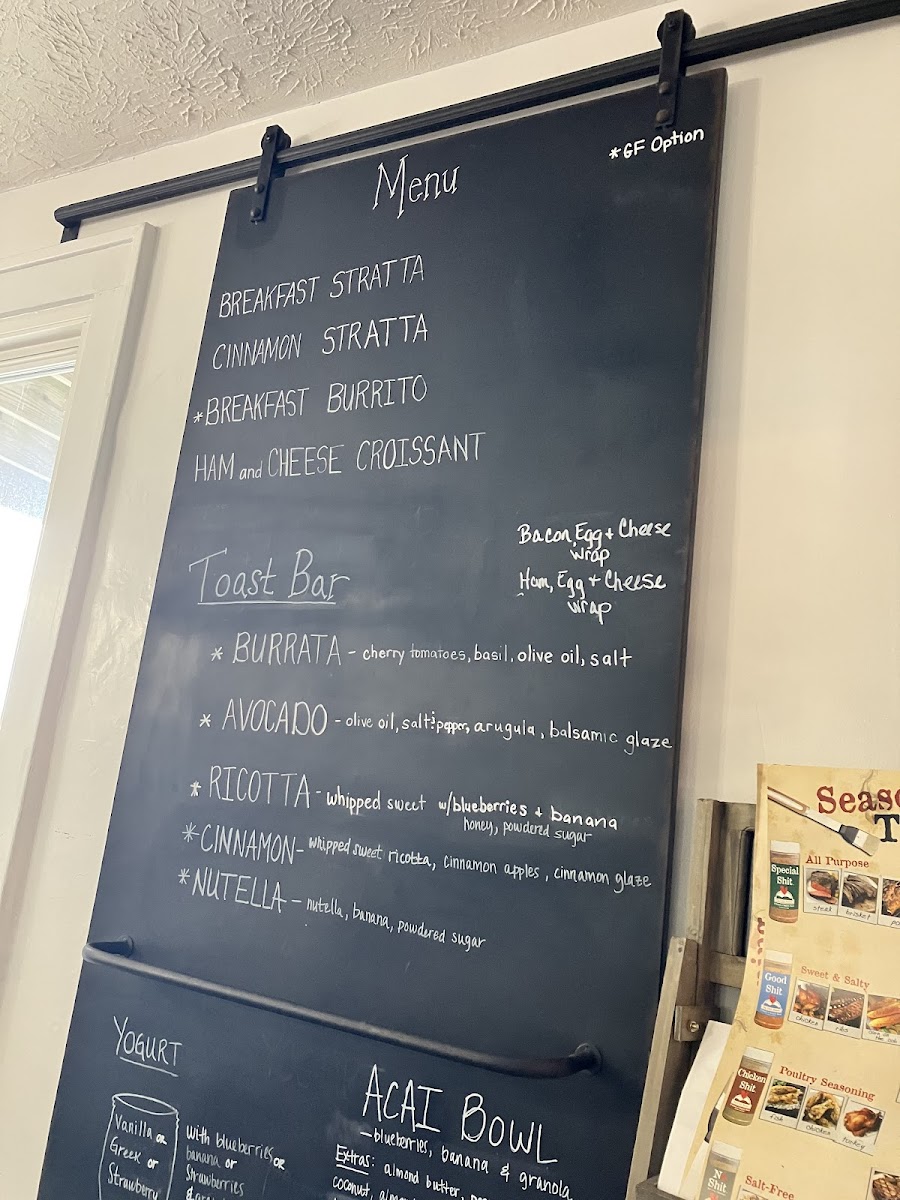 *GF Option
Menu
BREAKFAST STRATTA
CINNAMON STRATTA
*BREAKFAST BURRITO
HAM and CHEESE CROISSANT
Bacon, Egg + Cheese
wrap
Ham, Egg + Cheese
wrap
Toast Bar
* BURRATA - cherry tomatoes, basil, olive oil, salt
* AVOCADO - olive oil, salt & pepper, arugula, balsamic glaze
* RICOTTA - whipped sweet w/blueberries + banana
honey, powdered sugar
* CINNAMON - whipped sweet ricotta, cinnamon apples, cinnamon glaze
* NUTELLA - nutella, banana, powdered sugar
YOGURT
Vanilla or
Greek or
Strawberry
with blueberries or
banana or
strawberries
ACAI BOWL
- blueberries, banana & granola
Extras: almond butter,
coconut,
All Purpose
Special
Shit
steak
brisket
Sweet & Salty
Good
Shit
chicken
ribs
Poultry Seasoning
Chicken
Shit
fish
chicken
turkey
Salt-Free
Shit